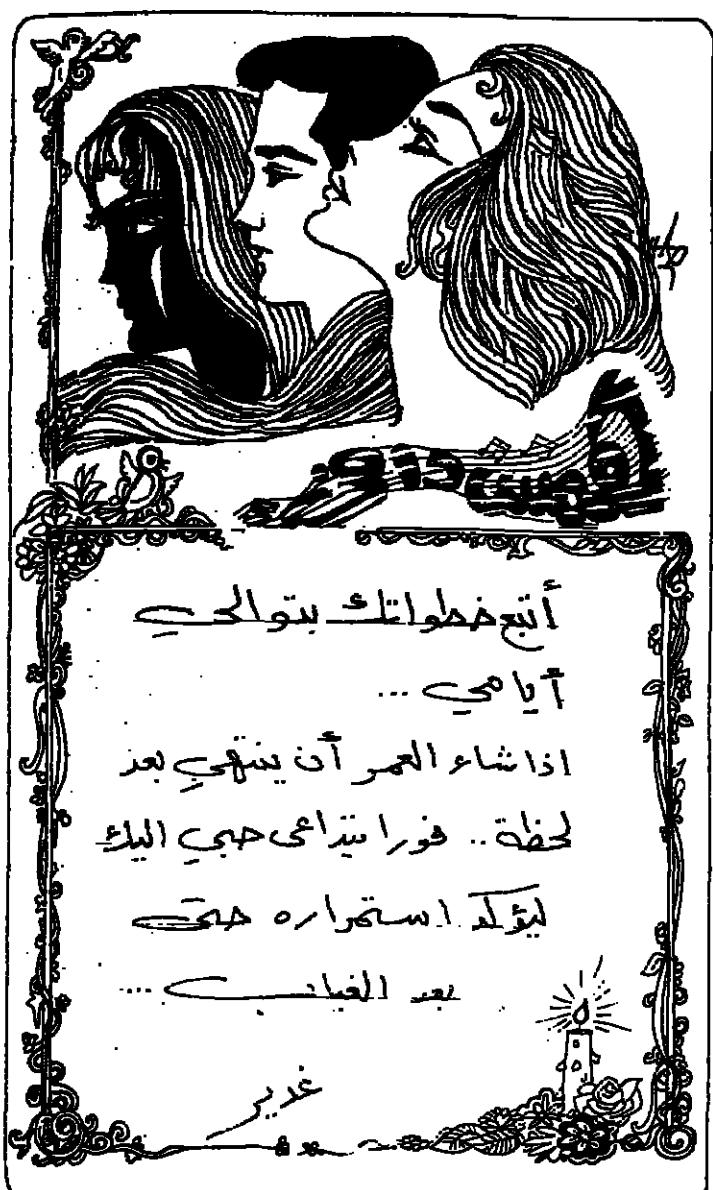 أتبع خطواتك بتوالي
أيامي ...
اذا شاء العمر أن ينتهي بعد
لحظة .. فورا يتداعى حبي اليك
ليؤكد استمراره حتى
بعد الغياب ...
غدير